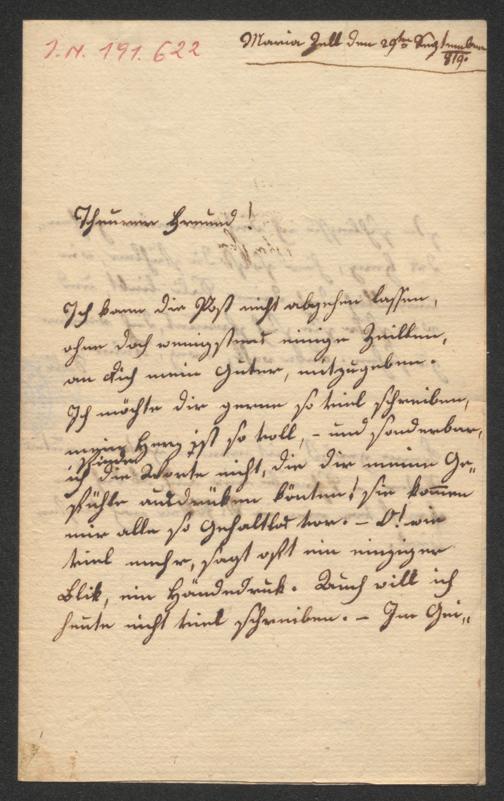 J.N. 191.622
Maria Zell den 29ten September
819.
Theurer Freund!
Ich kann die Post nicht abgehen lassen,
ohne doch wenigstens einige Zeillen,
an dich mein Guter, mitzugeben.
Ich möchte dir gerne so viel schreiben,
mein Herz ist so voll, – und sonderbar,
finde
ich die Worte nicht, die dir meine Ge„
fühle ausdrüken könten! sie kom̅en
mir alle so Gehaltlos vor. – O! wie
viel mehr, sagt oft ein einziger
Blik, ein Händedruk. Auch will ich
heute nicht viel schreiben. – Im Gei„